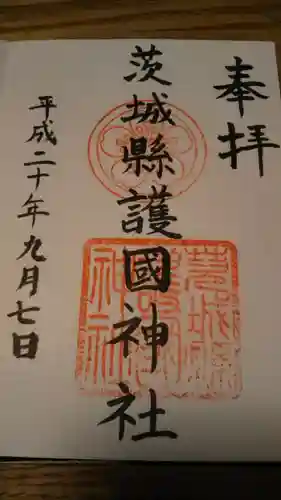 奉拝
茨城縣護國神社
平成二十年九月七日
茨城縣
護國
神社